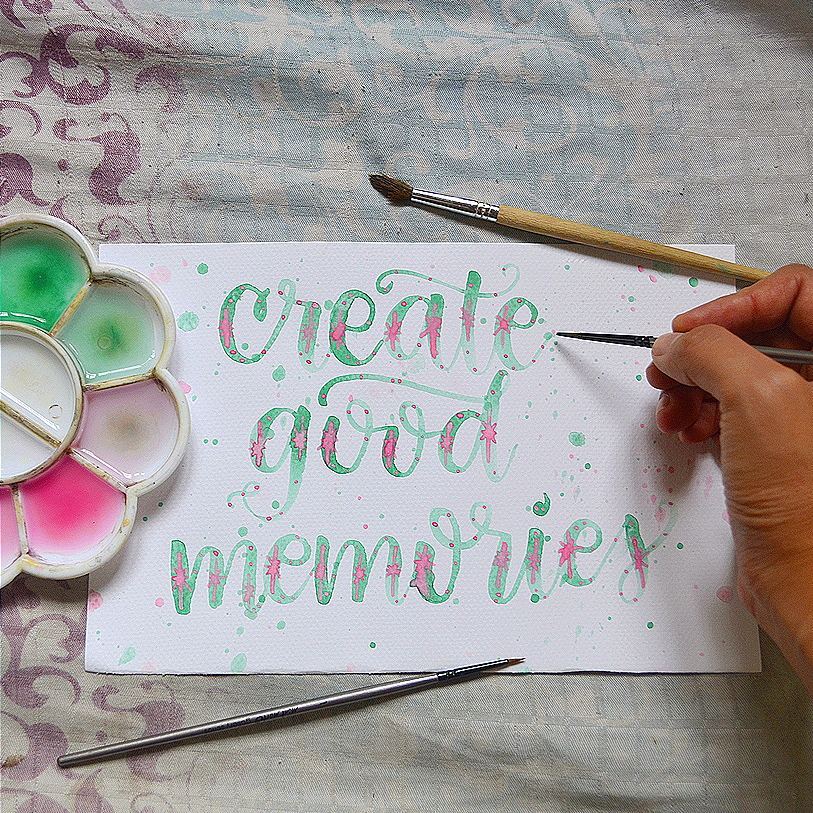 create
good
memories